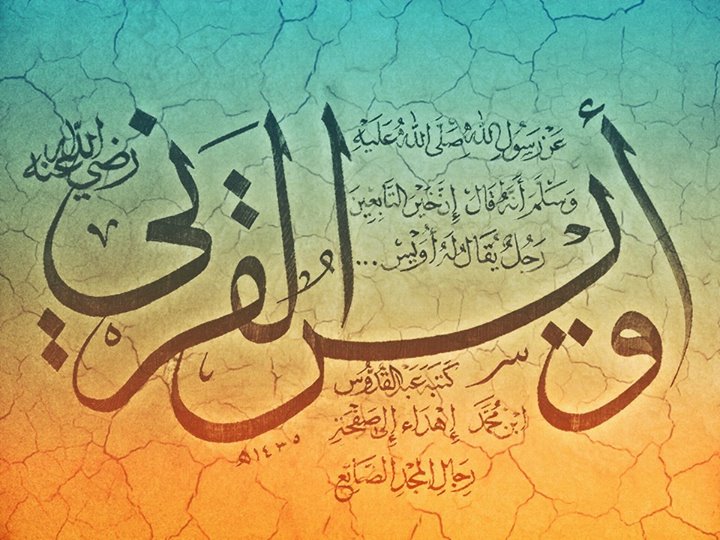 أويس القرني
رضي الله عنه
عَنْ رَسُولِ اللهِ صَلَّى اللهُ عَلَيْهِ
وَسَلَّمَ أَنَّهُ قَالَ إِنَّ خَيْرَ التَّابِعِينَ
رَجُلٌ يُقَالُ لَهُ أُوَيْسٌ...
كَتَبَهُ عَبْدُ الْقُدُّوسِ
ابْنُ مُحَمَّدٍ إِهْدَاءً إِلَى صَفْحَةِ
رِجَالِ الْمَجْدِ الضَّائِعِ
١٤٣٥هـ